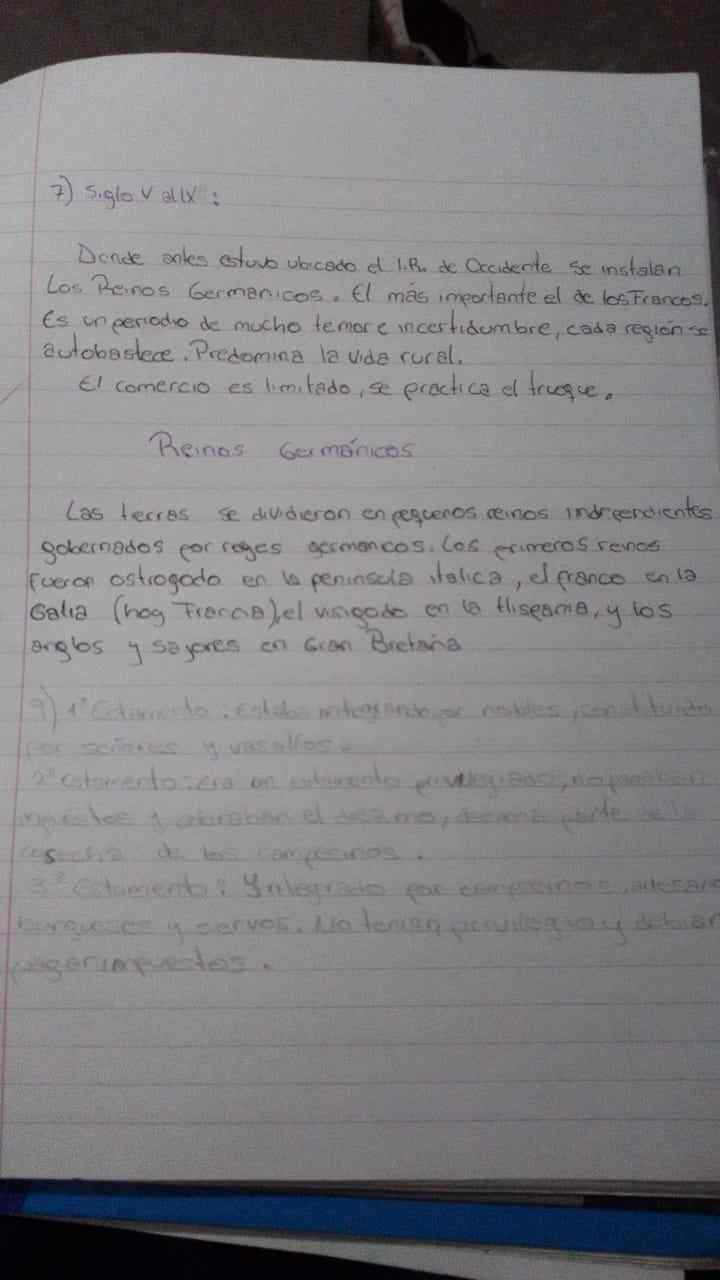 7) Siglo V al IX :
Donde antes estuvo ubicado el I.R. de Occidente se instalan
Los Reinos Germanicos. El más importante el de los Francos.
Es un periodo de mucho temor e incertidumbre, cada región se
autobastece. Predomina la vida rural.
El comercio es limitado, se practica el trueque.
Reinos Germánicos
Las terras se dividieron en pequenos reinos indreendientes
gobernados por reyes germancos. Los primeros reinos
fueron ostrogado en la peninsula italica, el franco en la
Galia (hoy Francia), el visigodo en la Hispania, y los
anglos y sajores en Gran Bretaña
9) 1º Estamento : Estaba integrando por nobles, constituida
por señores y vasallos.
2º Estamento : era un estamento privilegiado, no pagaban
impuestos y cobraban el diezmo, decima parte de la
cosecha de los campesinos.
3º Estamento : Integrado por campesinos, artesan
burgueses y siervos. No tenian privilegio y debian
pagar impuestos.